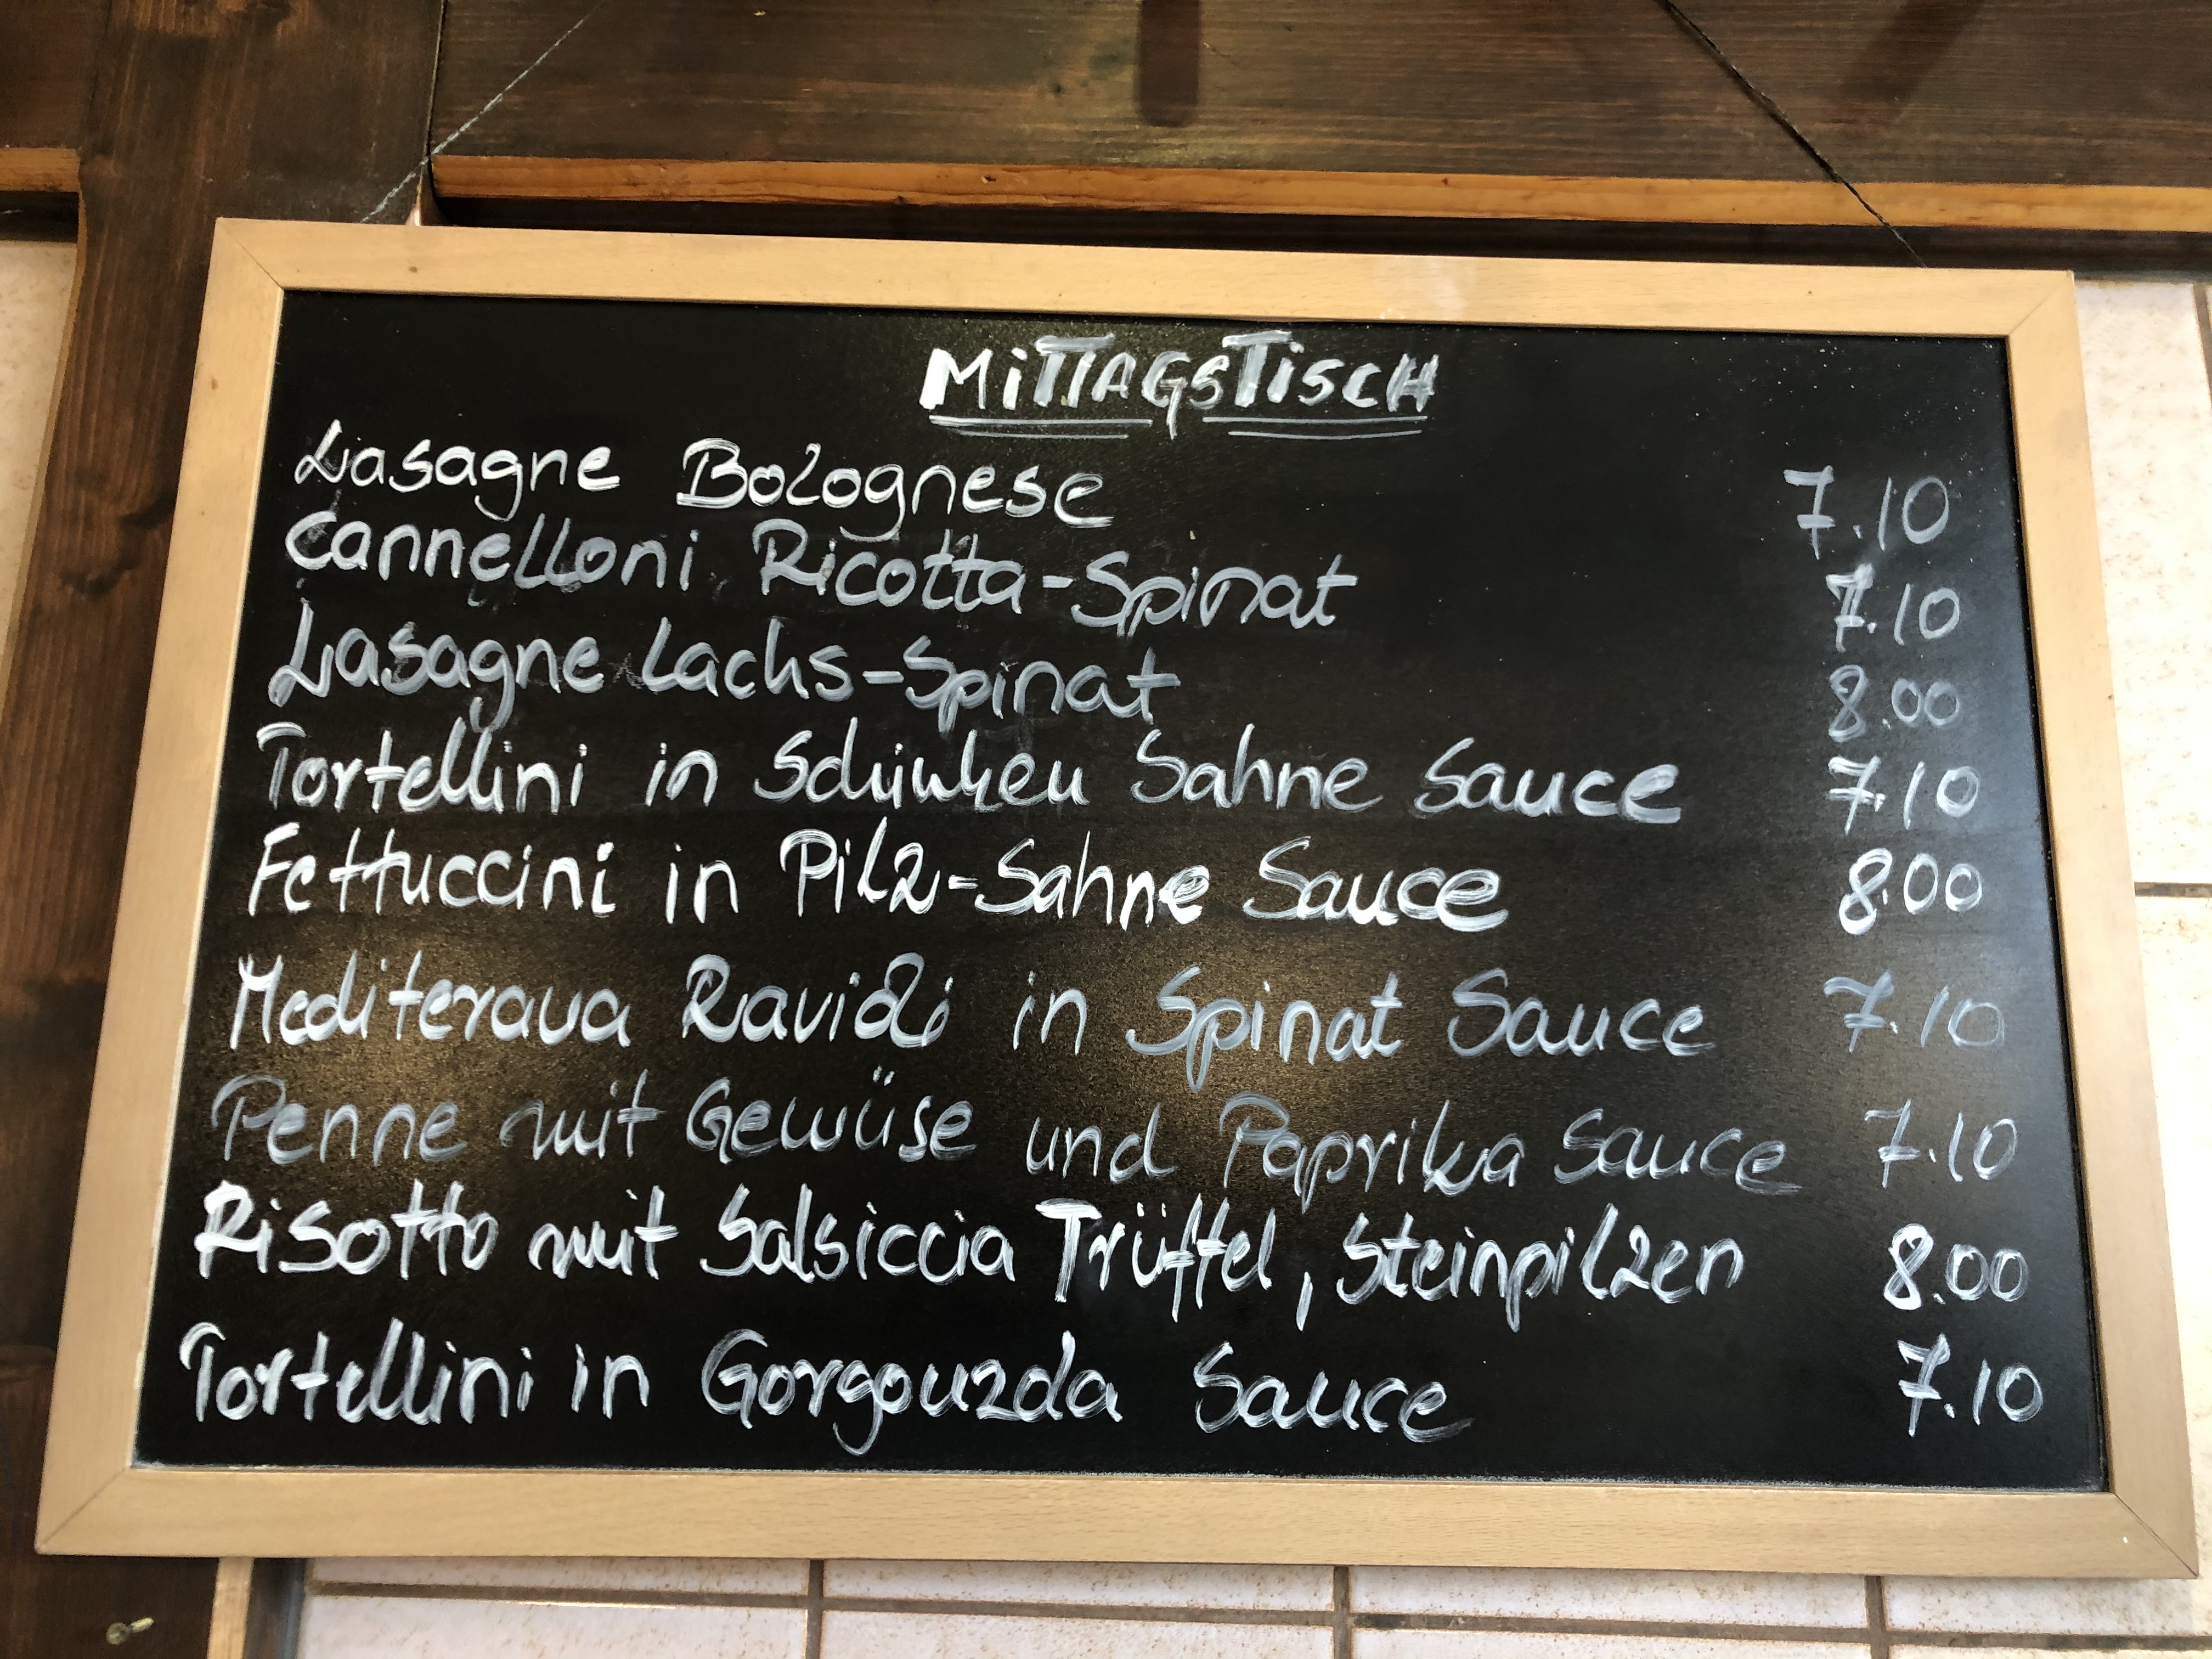 MiTTAGSTiSCH
Lasagne Bolognese 7.10
Cannelloni Ricotta-Spinat 7.10
Lasagne Lachs-Spinat 8.00
Tortellini in Schinken Sahne Sauce 7.10
Fettuccini in Pilz-Sahne Sauce 8.00
Mediterana Ravioli in Spinat Sauce 7.10
Penne mit Gewüse und Paprika Sauce 7.10
Risotto mit Salsiccia Trüffel, Steinpilzen 8.00
Tortellini in Gorgonzola Sauce 7.10